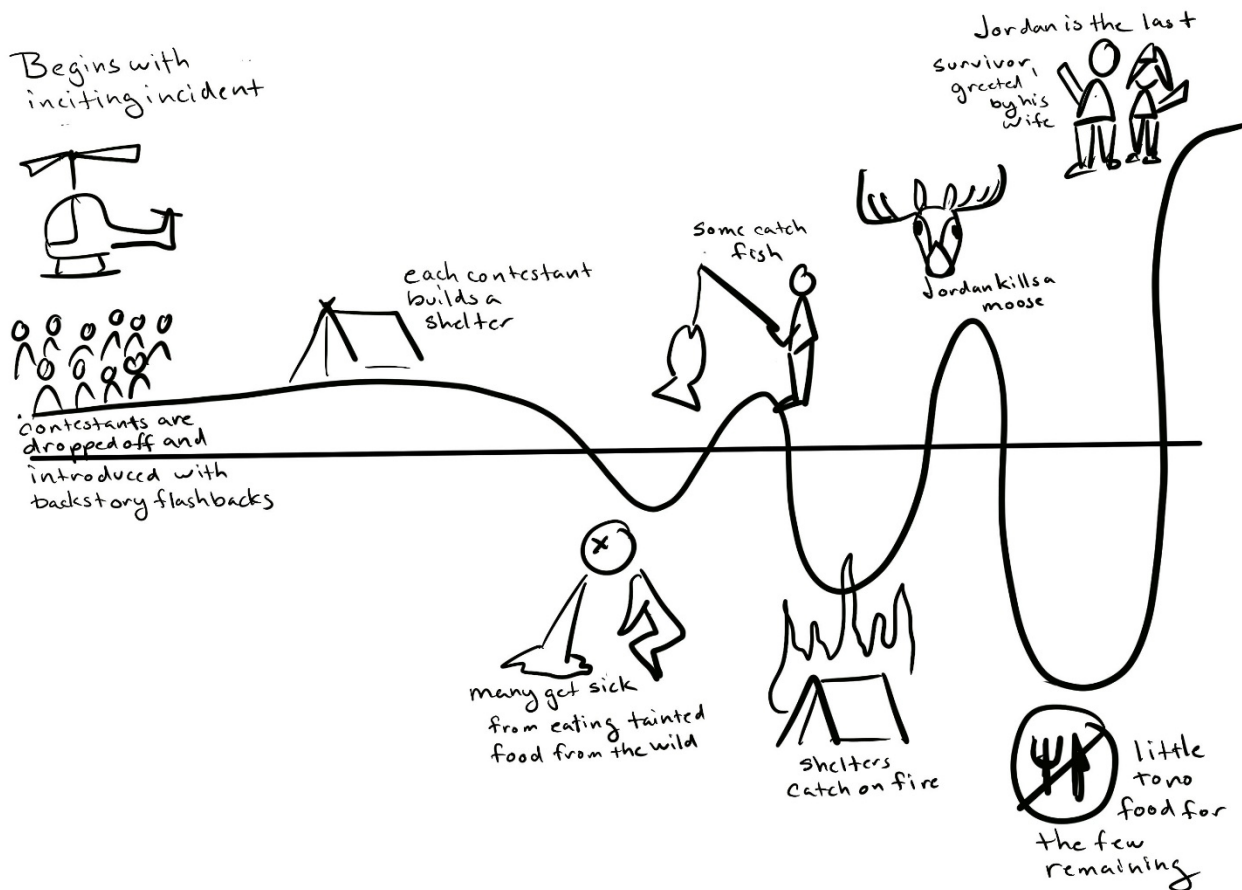 Begins with
inciting incident
contestants are
dropped off and
introduced with
backstory flashbacks
each contestant
builds a
shelter
many get sick
from eating tainted
food from the wild
some catch
fish
shelters
catch on fire
Jordan kills a
moose
little
to no
food for
the few
remaining
Jordan is the last
survivor,
greeted
by his
wife